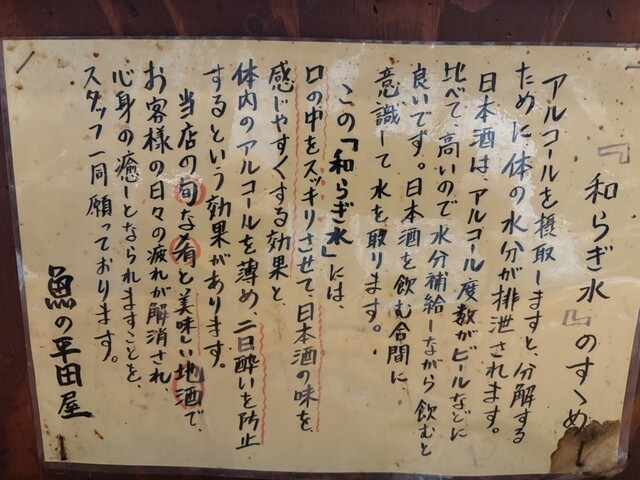 『和らぎ水』のすゝめ
アルコールを摂取しますと、分解する
ために体の水分が排泄されます。
日本酒は、アルコール度数がビールなどに
比べて高いので水分補給しながら飲むと
良いです。日本酒を飲む合間に
意識して水を取ります。
この「和らぎ水」には、
口の中をスッキリさせて、日本酒の味を
感じやすくする効果と、
体内のアルコールを薄め、二日酔いを防止
するという効果があります。
当店の旬な肴と美味しい地酒で、
お客様の日々の疲れが解消され、
心身の癒しとなられますことを、
スタッフ一同願っております。
魚の平田屋